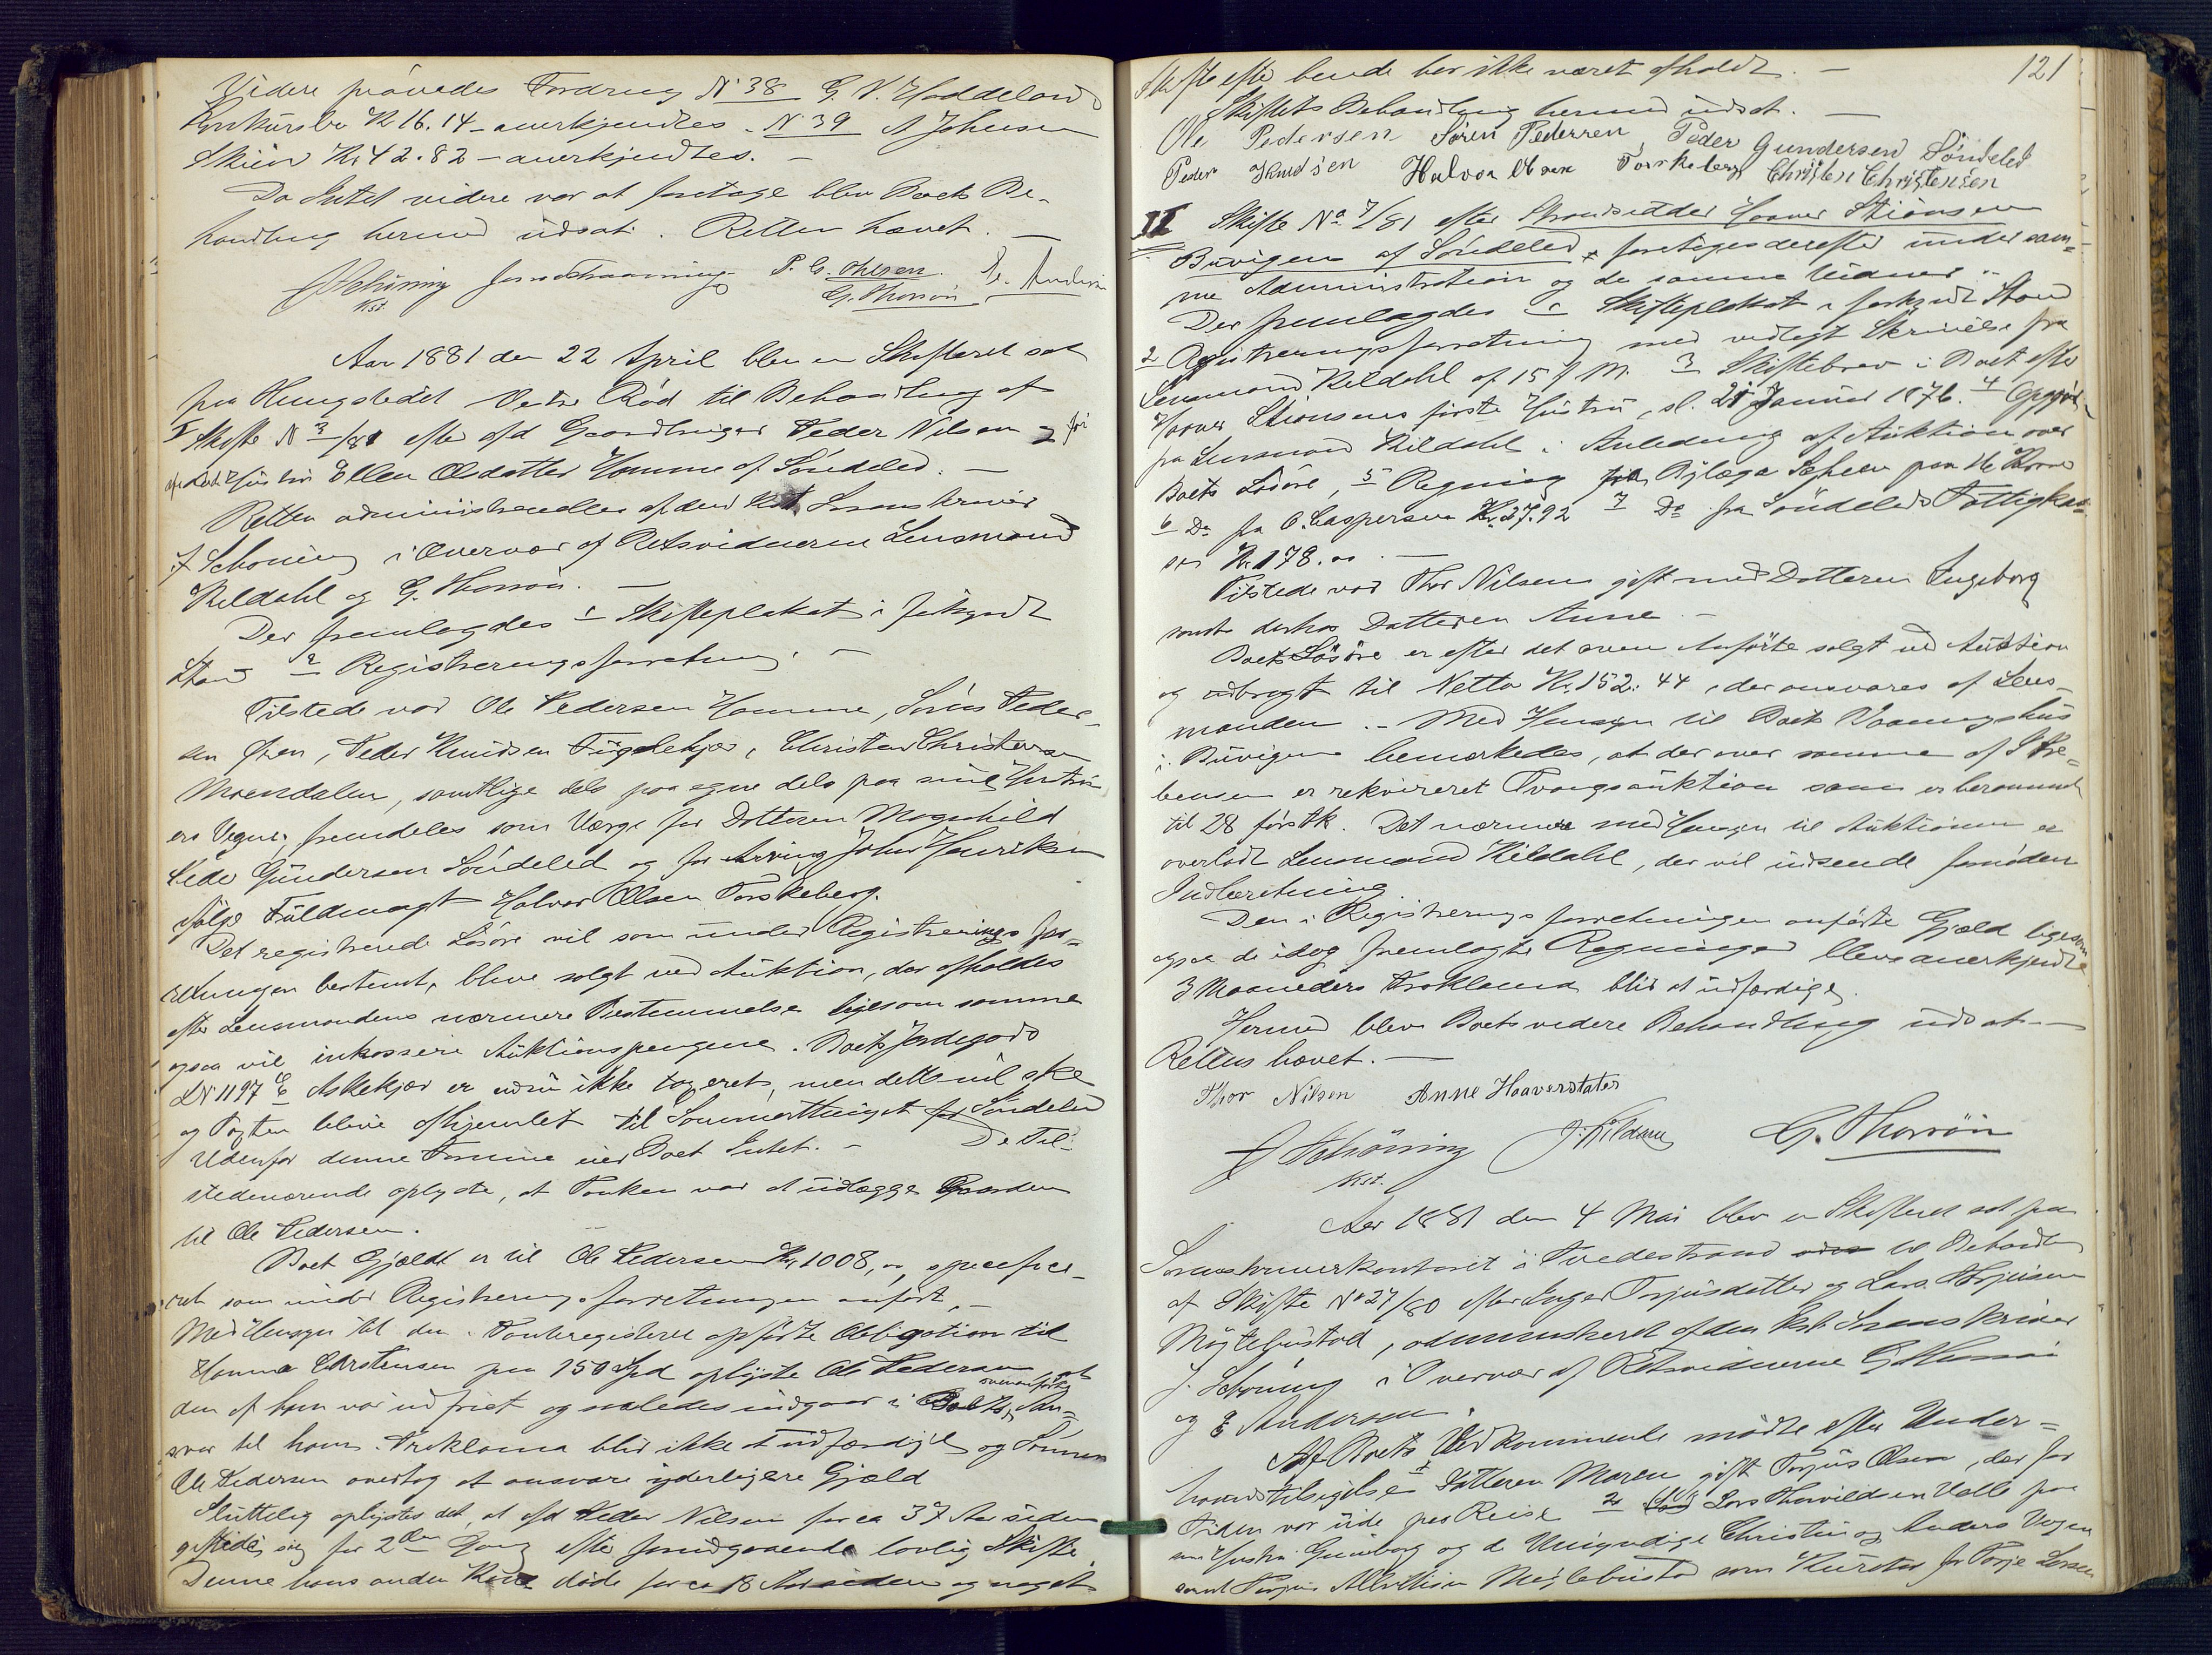 Videre prövedes Fordring No 38 G. V. Haddeland
Kr 16.14 - anerkjendtes - N 39 A Johnsen
Skien Kr 42.82 - anerkjendtes. -
Da Intet videre var at foretage blev Boets Be-
handling hermed udsat. Retten hævet. -
J Schöning P. G. Ohlsen E. Andersen
Kst. G. Thorsön
Aar 1881 den 22 April blev en Skifteret sat
paa Thingstedet Vestre Röd til Behandling af
I Skifte No 3/81 efter afd Gaardbruger Peder Nilsen og för
afdöde Hustru Ellen Olsdatter Hamme af Söndeled. -
Retten administreredes af den kst Sorenskriver
J Schöning i Overvær af Retsvidnerne Lensmand
Kildahl og G. Thorsön. -
Der fremlagdes 1 Skifteplakat i forkyndt
Stand 2 Registreringsforretning. -
Tilstede var Ole Pedersen Hamme, Sören Peder-
sen, Peder Knudsen Fuglekjær, Christen Christensen
Moendalen, samtlige dels paa egne dels paa sine Hustru-
ers Vegne, fremdeles som Værge for Datteren Magnhild
Peder Gundersen Söndeled og for Arving John Henriksen
ifölge Fuldmagt Halvor Olsen Torskeberg.
Det registrerede Lösöre vil som under Registreringsfor-
retningen bestemt, blive solgt ved Auktion, der afholdes
efter Lensmandens nærmere Bestemmelse ligesom samme
ogsaa vil inkassere Auktionspengene. Boets Jordegods
LN 1197 E Askekjær er endnu ikke taxeret, men dette vil ske
og Taxten blive afhjemlet til Sommerthinget for Söndeled
Udenfor denne Eiendom eier Boet Intet. - De Til-
stedeværende oplyste, at Tanken var at udlægge Gaarden
til Ole Pedersen.
Boets Gjæld er til Ole Pedersen Kr 1008,00, specifice-
ret som under Registreringsforretningen anfört. -
Med Hensyn til den i Panteregisteret opförte Obligation til
Hanna Carstensen paa 150 Spd oplyste Ole Pedersen, at
den af ham var indfriet og saaledes indgaar i Boets ovenanförte An-
svar til ham. Proklama blir ikke at udfærdige og Sönnen
Ole Pedersen overtog at ansvare yderligere Gjæld
Sluttelig oplystes det, at afd Peder Nilsen for ca 37 Aar siden
giftede sig for 2den Gang efter forudgaaende lovlig Skifte.
Denne hans anden Kone döde for ca 18 Aar siden og noget
121
Skifte efter hende har ikke været afholdt. -
Skiftets Behandling hermed udsat. -
Ole Pedersen Sören Pedersen Peder Gundersen Söndeled
Peder Knudsen Halvor Olsen Torskeberg Christen Christensen
II Skifte No 7/81 efter Strandsidder Haaver Stiansen
Buvigen af Söndeled foretoges derefter under sam-
me Administration og de samme Vidner.
Der fremlagdes 1 Skifteplakat i forkyndt Stand
2 Registreringsforretning med vedlagt Skrivelse fra
Lensmand Kildahl af 15 f. M. 3 Skiftebrev i Boet efter
Haaver Stiansens förste Hustru, sl. 21 Januar 1876. 4 Opgjör
fra Lensmand Kildahl i Anledning af Auktion over
Boets Lösöre, 5 Regning fra Distriktslæge paa 16 Kroner
6 Do fra C. Caspersen Kr. 37.92 7 Do fra Söndeleds Fattigkas-
se Kr. 178.00. -
Tilstede var Thor Nilsen gift med Datteren Ingeborg
samt derhos Datteren Anne. -
Boets Lösöre er efter det oven Anförte solgt ved Auktion
og udbragt til Netto Kr. 152.44, der ansvares af Lens-
manden. - Med Hensyn til Boets Vaaningshus
i Buvigen bemærkedes, at der over samme af
er rekvireret Tvangsauktion som er berammet
til 28 förstk. Det nærmere med Hensyn til Auktionen er
overladt Lensmand Kildahl, der vil indsende fornöden
Indberetning.
Den i Registreringsforretningen anförte Gjæld ligesom
ogsaa de idag fremlagte Regninger bleve anerkjendte
3 Maaneders Proklama blir at udfærdige.
Hermed blev Boets videre Behandling udsat. -
Retten hævet. -
Thor Nilsen Anne Haaversdatter
J Schöning J. Kildahl G. Thorsön
Kst.
Aar 1881 den 4 Mai blev en Skifteret sat paa
Sorenskriverkontoret i Tvedestrand til Behandl
af Skifte No 27/80 efter Inger Torjusdatter og Lars Torjusen
Möglebustad, administreret af den kst Sorenskriver
J. Schöning i Overvær af Retsvidnerne G Thorsön
og E Andersen.
Af Boets Vedkommende mödte efter Under-
haandstilsigelse 1 Datteren Maren gift Torjus Olsen, der for
Tiden var ude paa Reise 2 Lars Thorvildsen Valle paa
sin Hustru Gunborg og de Umyndige Christen og Anders Vegne
samt Torjus Möglebustad som Kurator for Torje Larsen